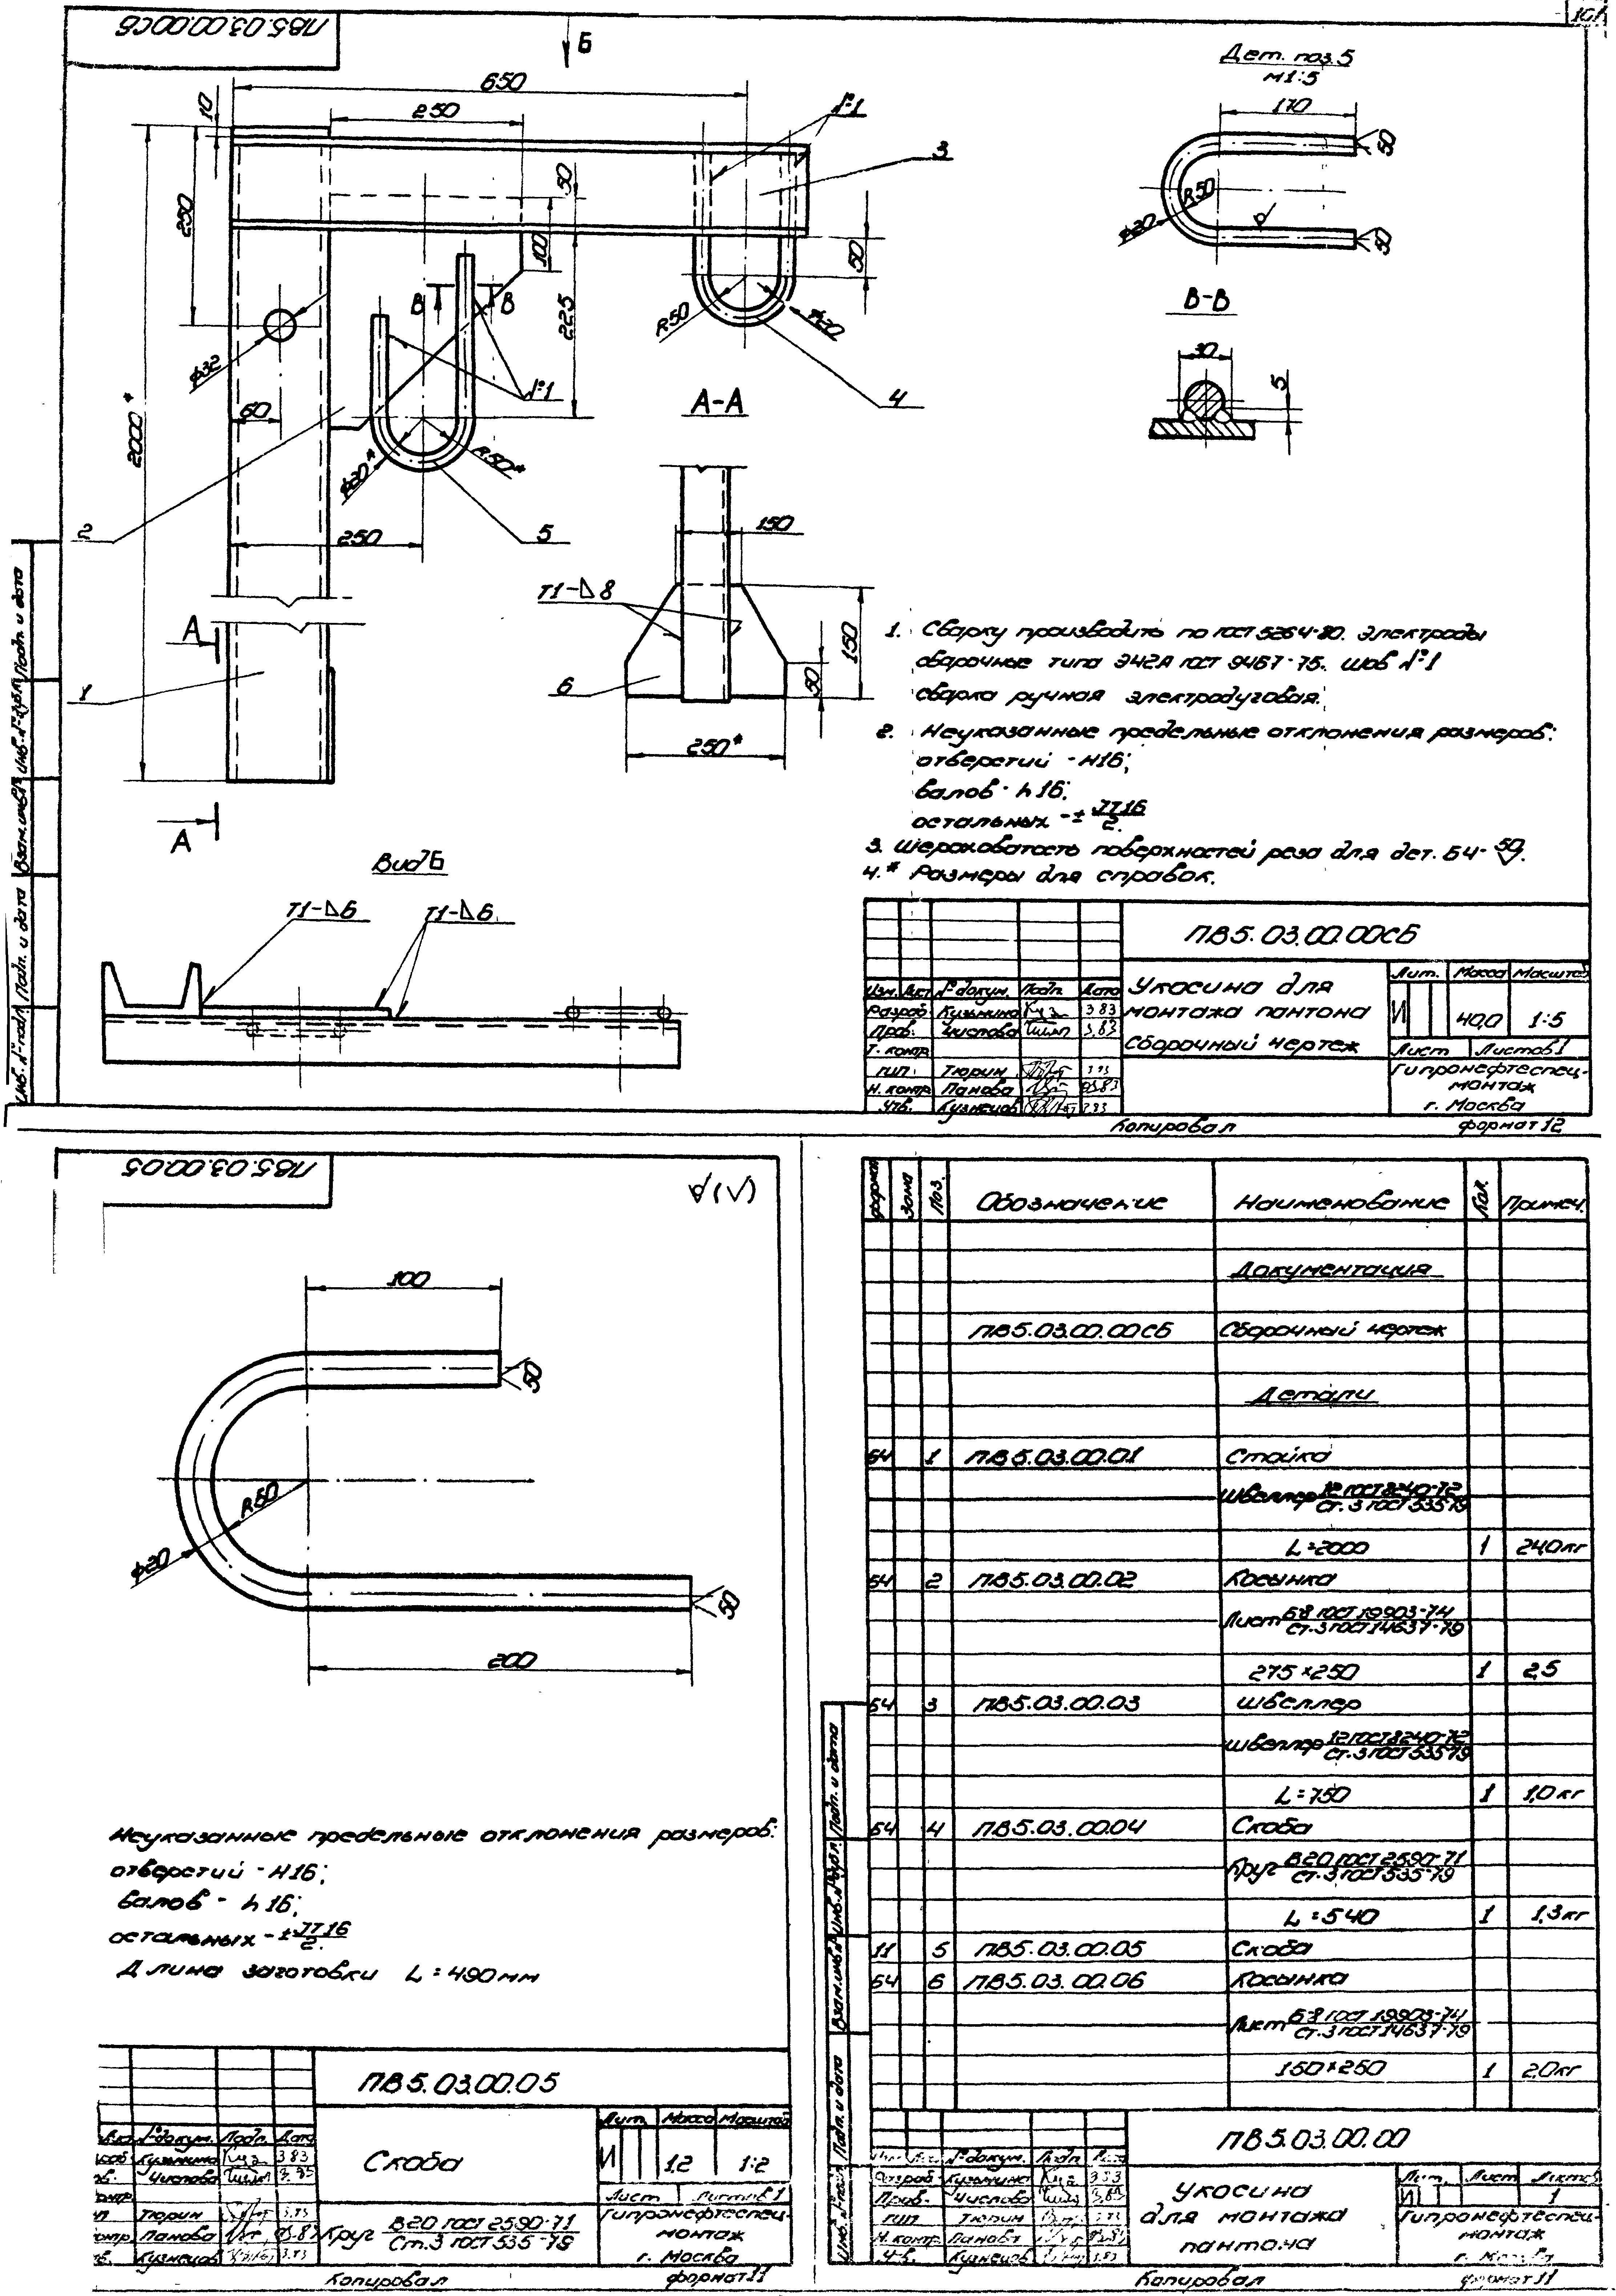 ПВ5.03.00.00СБ
101
Б
650
250
10
№1
3
50
100
225
250
50
2000*
ф32
60
В
В
R50
ф20
4
№1
ф20*
R50*
2
250
5
А
1
А
Дет. поз. 5
М1:5
170
50
R50
ф20
50
В-В
30
5
А-А
150
Т1-△8
150
50
6
250*
1. Сварку производить по ГОСТ 5264-80. Электроды
сварочные типа Э42А ГОСТ 9467-75. Шов №1
сварка ручная электродуговая.
2. Неуказанные предельные отклонения размеров:
отверстий - Н16;
валов - h16;
остальных - ± IT16/2.
3. Шероховатость поверхностей реза для дет. БЧ - 50.
4.* Размеры для справок.
Вид Б
Т1-△6
Т1-△6
ПВ5.03.00.00СБ
Укосина для
монтажа пантона
Сборочный чертеж
Лит. Масса Масштаб
И 40,0 1:5
Лист Листов 1
Гипронефтеспец-
монтаж
г. Москва
Изм. Лист № докум. Подп. Дата
Разраб. Кузьмина 3.83
Пров. Чистова 3.83
Т. контр.
ГИП Тюрин
Н. контр. Панова
Утв. Кузнецов
Копировал Формат 12
Инв. № подл. Подп. и дата Взам. инв. № Инв. № дубл. Подп. и дата
ПВ5.03.00.05
√(√)
100
50
R50
ф20
50
200
Неуказанные предельные отклонения размеров:
отверстий - Н16;
валов - h16;
остальных - ± IT16/2.
Длина заготовки L=490мм
ПВ5.03.00.05
Скоба
Лит. Масса Масштаб
И 1,2 1:2
Лист Листов 1
Круг В20 ГОСТ 2590-71
Ст.3 ГОСТ 535-79
Гипронефтеспец-
монтаж
г. Москва
№ докум. Подп. Дата
Кузьмина 3.83
Чистова
Тюрин
Панова
Кузнецов
Копировал Формат 11
Формат Зона Поз. Обозначение Наименование Кол. Примеч.
Документация
ПВ5.03.00.00СБ Сборочный чертеж
Детали
БЧ 1 ПВ5.03.00.01 Стойка
Швеллер 12 ГОСТ 8240-72
Ст.3 ГОСТ 535-79
L=2000 1 24,0кг
БЧ 2 ПВ5.03.00.02 Косынка
Лист Б-8 ГОСТ 19903-74
Ст.3 ГОСТ 14637-79
275×250 1 2,5
БЧ 3 ПВ5.03.00.03 Швеллер
Швеллер 12 ГОСТ 8240-72
Ст.3 ГОСТ 535-79
L=750 1 1,0кг
БЧ 4 ПВ5.03.00.04 Скоба
Круг В20 ГОСТ 2590-71
Ст.3 ГОСТ 535-79
L=540 1 1,3кг
11 5 ПВ5.03.00.05 Скоба
БЧ 6 ПВ5.03.00.06 Косынка
Лист Б-8 ГОСТ 19903-74
Ст.3 ГОСТ 14637-79
150×250 1 2,0кг
ПВ5.03.00.00
Укосина
для монтажа
пантона
Лит. Лист Листов
И 1
Гипронефтеспец-
монтаж
г. Москва
№ докум. Подп. Дата
Разраб. Кузьмина 3.83
Пров. Чистова 3.83
ГИП Тюрин
Н. контр. Панова
Утв. Кузнецов
Инв. № подл. Подп. и дата Взам. инв. № Инв. № дубл. Подп. и дата
Копировал Формат 11